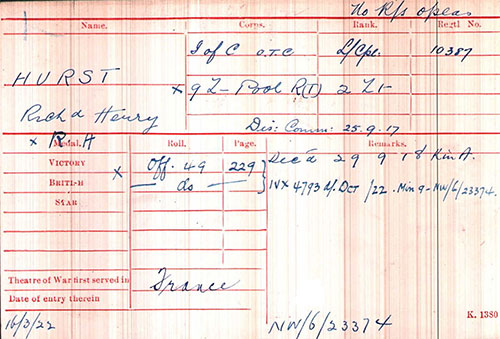 No R/s opens
Name. Corps. Rank. Regtl. No.
HURST
Richd Henry
x R.H
I of C O.T.C L/Cpl. 10387
x 9 L- Pool R(T) 2 Lt
Dis: Comm: 25.9.17
Medal. Roll. Page. Remarks.
VICTORY x Off. 49 229 Dec'd 29 9 18 K in A.
BRITISH — do — IVX 4793 d/. OCT /22. Min 9 - NW/6/23374.
STAR
Theatre of War first served in France
Date of entry therein
K. 1380
16/3/22 NW/6/23374